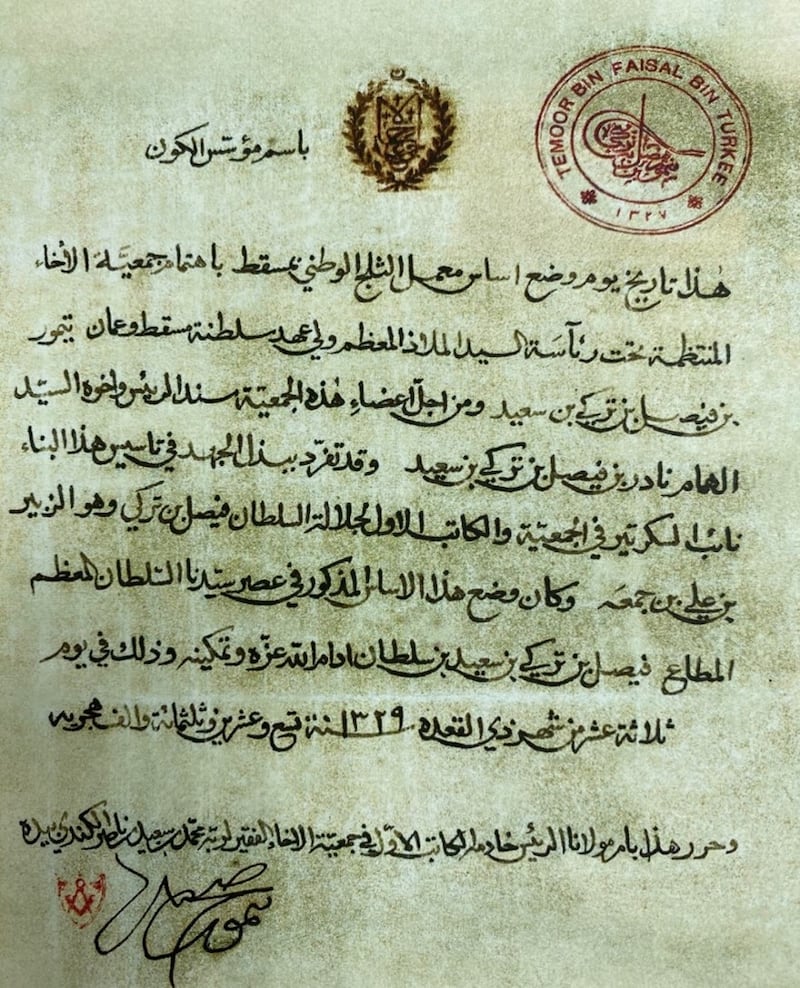 TEMOOR BIN FAISAL BIN TURKEE
١٣٢٧
باسم مؤسّس الكون
هٰذا تاريخ يوم وضع اساس معمل الثلج الوطني بمسقط باهتمام جمعيّة الأخاء
المنتظمة تحت رئآسة السيد الملاذ المعظم ولي عهد سلطنة مسقط وعمان تيمور
بن فيصل بن تركي بن سعيد ومن اجلّ اعضاءِ هٰذه الجمعيّة سند الرئيس واخوه السيّد
الهمام نادر بن فيصل بن تركي بن سعيد وقد تفرّد ببذل الجهد في تاسيس هذا البناء
نائب السكرتير في الجمعيّة والكاتب الاول لجلالة السلطان فيصل بن تركي وهو الزبير
بن علي بن جمعه وكان وضع هذا الاساس المذكور في عصر سيّدنا السّلطان المعظم
المطاع فيصل بن تركي بن سعيد بن سلطان ادام الله عزّه وتمكينه وذلك في يوم
ثلاثة عشر من شهر ذي القعدة ١٣٢٩ سنة تسع وعشرين وثلثمائة والف هجريه
وحرر هذا بامر مولانا الرئيس خادمه الكاتب الاوّل في جمعيّة الاخاء الفقير لربه محمّد بن سعيد بن ناصر الكندي بيده
صحيح
تيمور